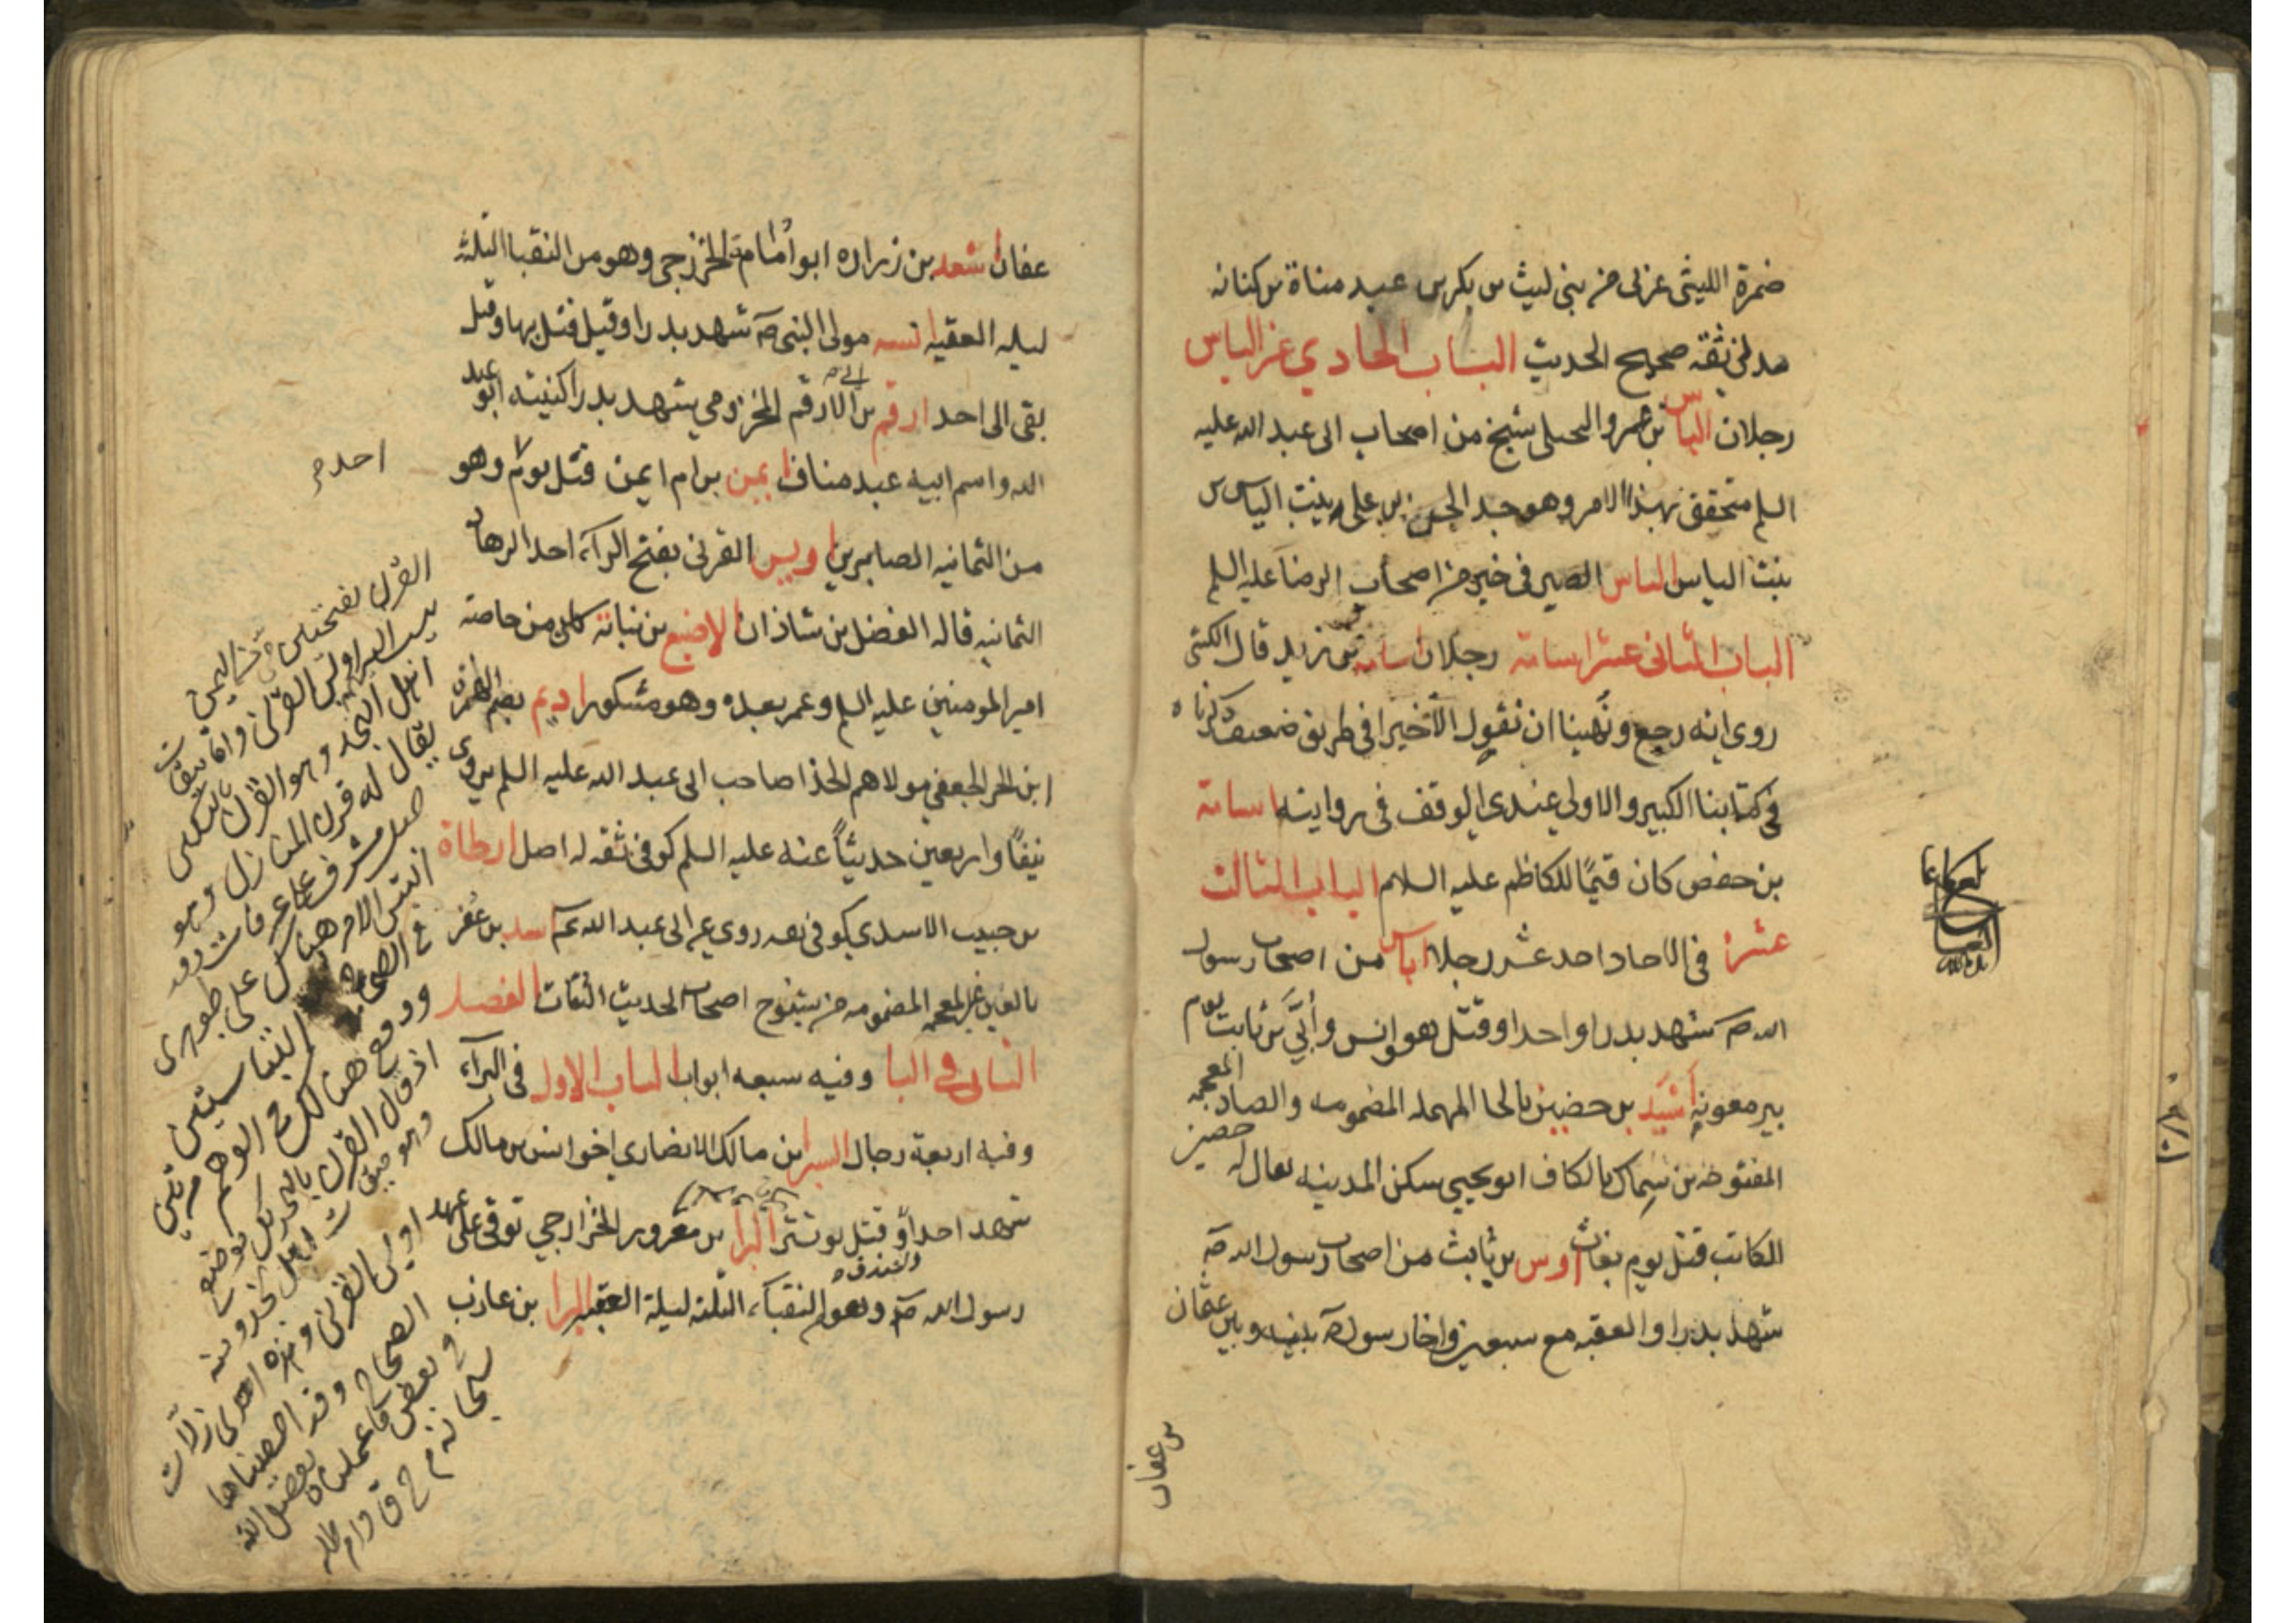 ضمرة الليثى عزلى من بنى ليث بن بكر بن عبد مناة بن كنانه
مدنى ثقه صحيح الحديث الباب الحادي عشر الياس
رجلان الياس بن عمرو البجلى شيخ من اصحاب ابى عبد الله عليه
السلم متحقق بهذا الامر وهو جد الحسن بن على بن بنت الياس
بنت الياس الياس الصيرفى خير من اصحاب الرضا عليه السلم
الباب الثانى عشر اسامة رجلان اسامه بن زيد قال الكشى
روى انه رجع ونهينا ان نقول الا خيرا فى طريق ضعيف ذكرناه
فى كتابنا الكبير والاولى عندى الوقف فى روايته اسامة
بن حفص كان قيمًا للكاظم عليه السلام الباب الثالث
عشر فى الاحاد احد عشر رجلا اياس من اصحاب رسول
الله ص شهد بدرا واحدا وقتل هو وانس وأبَيّ بن ثابت يوم
بير معونه أسَيْد بن حضير بالحا المهمله المضمومه والضاد المعجمه
حضير
المفتوحه بن سِماك بالكاف ابو يحيى سكن المدينه يقال له
الكاتب قتل يوم بغاث اوس بن ثابت من اصحاب رسول الله ص
شهد بدرا والعقبه مع سبعين واخا رسول ص بينه وبين عثمان
بن عفان
عفان اسعد بن زراره ابو أمامة الخزرجى وهو من النقبا الثلثه
ليله العقبه انسه مولى النبى ص شهد بدرا وقيل قتل بها وقيل
بقى الى احد ارقم بن ابى الارقم المخزومى شهد بدرا كنيته ابو عبد
الله واسم ابيه عبد مناف ايمن بن ام ايمن قتل يوم وهو
احد
من الثمانيه الصابرين اويس القرنى بفتح الرآء احد الزهاد
الثمانيه قاله الفضل بن شاذان الاصبغ بن نباتة كان من خاصة
امير المومنين عليه السلم وعمر بعده وهو مشكور اديم بضم الهمزه
ابن الحر الجعفى مولاهم الحذا صاحب ابى عبد الله عليه السلم يروى
نيفًا واربعين حديثًا عنه عليه السلم كوفى ثقه له اصل ارطاة
بن حبيب الاسدى كوفى ثقه روى عن ابى عبد الله ع اسد بن عُفر
بالعين غير المعجمه المضمومه من شيوخ اصحاب الحديث الثقات الفصل
الثانى فى البا وفيه سبعه ابواب الباب الاول فى البرآء
وفيه اربعة رجال البرا بن مالك الانصارى اخو انس بن مالك
شهد احدًا والخندق وقتل يوم تستر البرا بن معرور الخزرجى توفى على عهد
رسول الله ص وهو من النقبآء الثلثه ليلة العقبه البرا بن عازب
القرن بفتحتين حى من اليمن
اليه اويس القرنى واما ميقات
اهل النجد وهو القرن بالتسكين
يقال له قرن المنازل وهو
جبل مشرف على عرفات وقد
التبس الامر هنالك على الجوهرى
فى الصحاح
ووقع هنالك فى الوهم مرتين
اذ قال القرن بالتحريك موضع
وهو ميقات اهل نجد ومنه
اويس القرنى وهذه احدى زلات
الصحاح وقد احصيناها
فى بعض ما عملناه بفضل الله
سبحانه م ح ق دام ظله